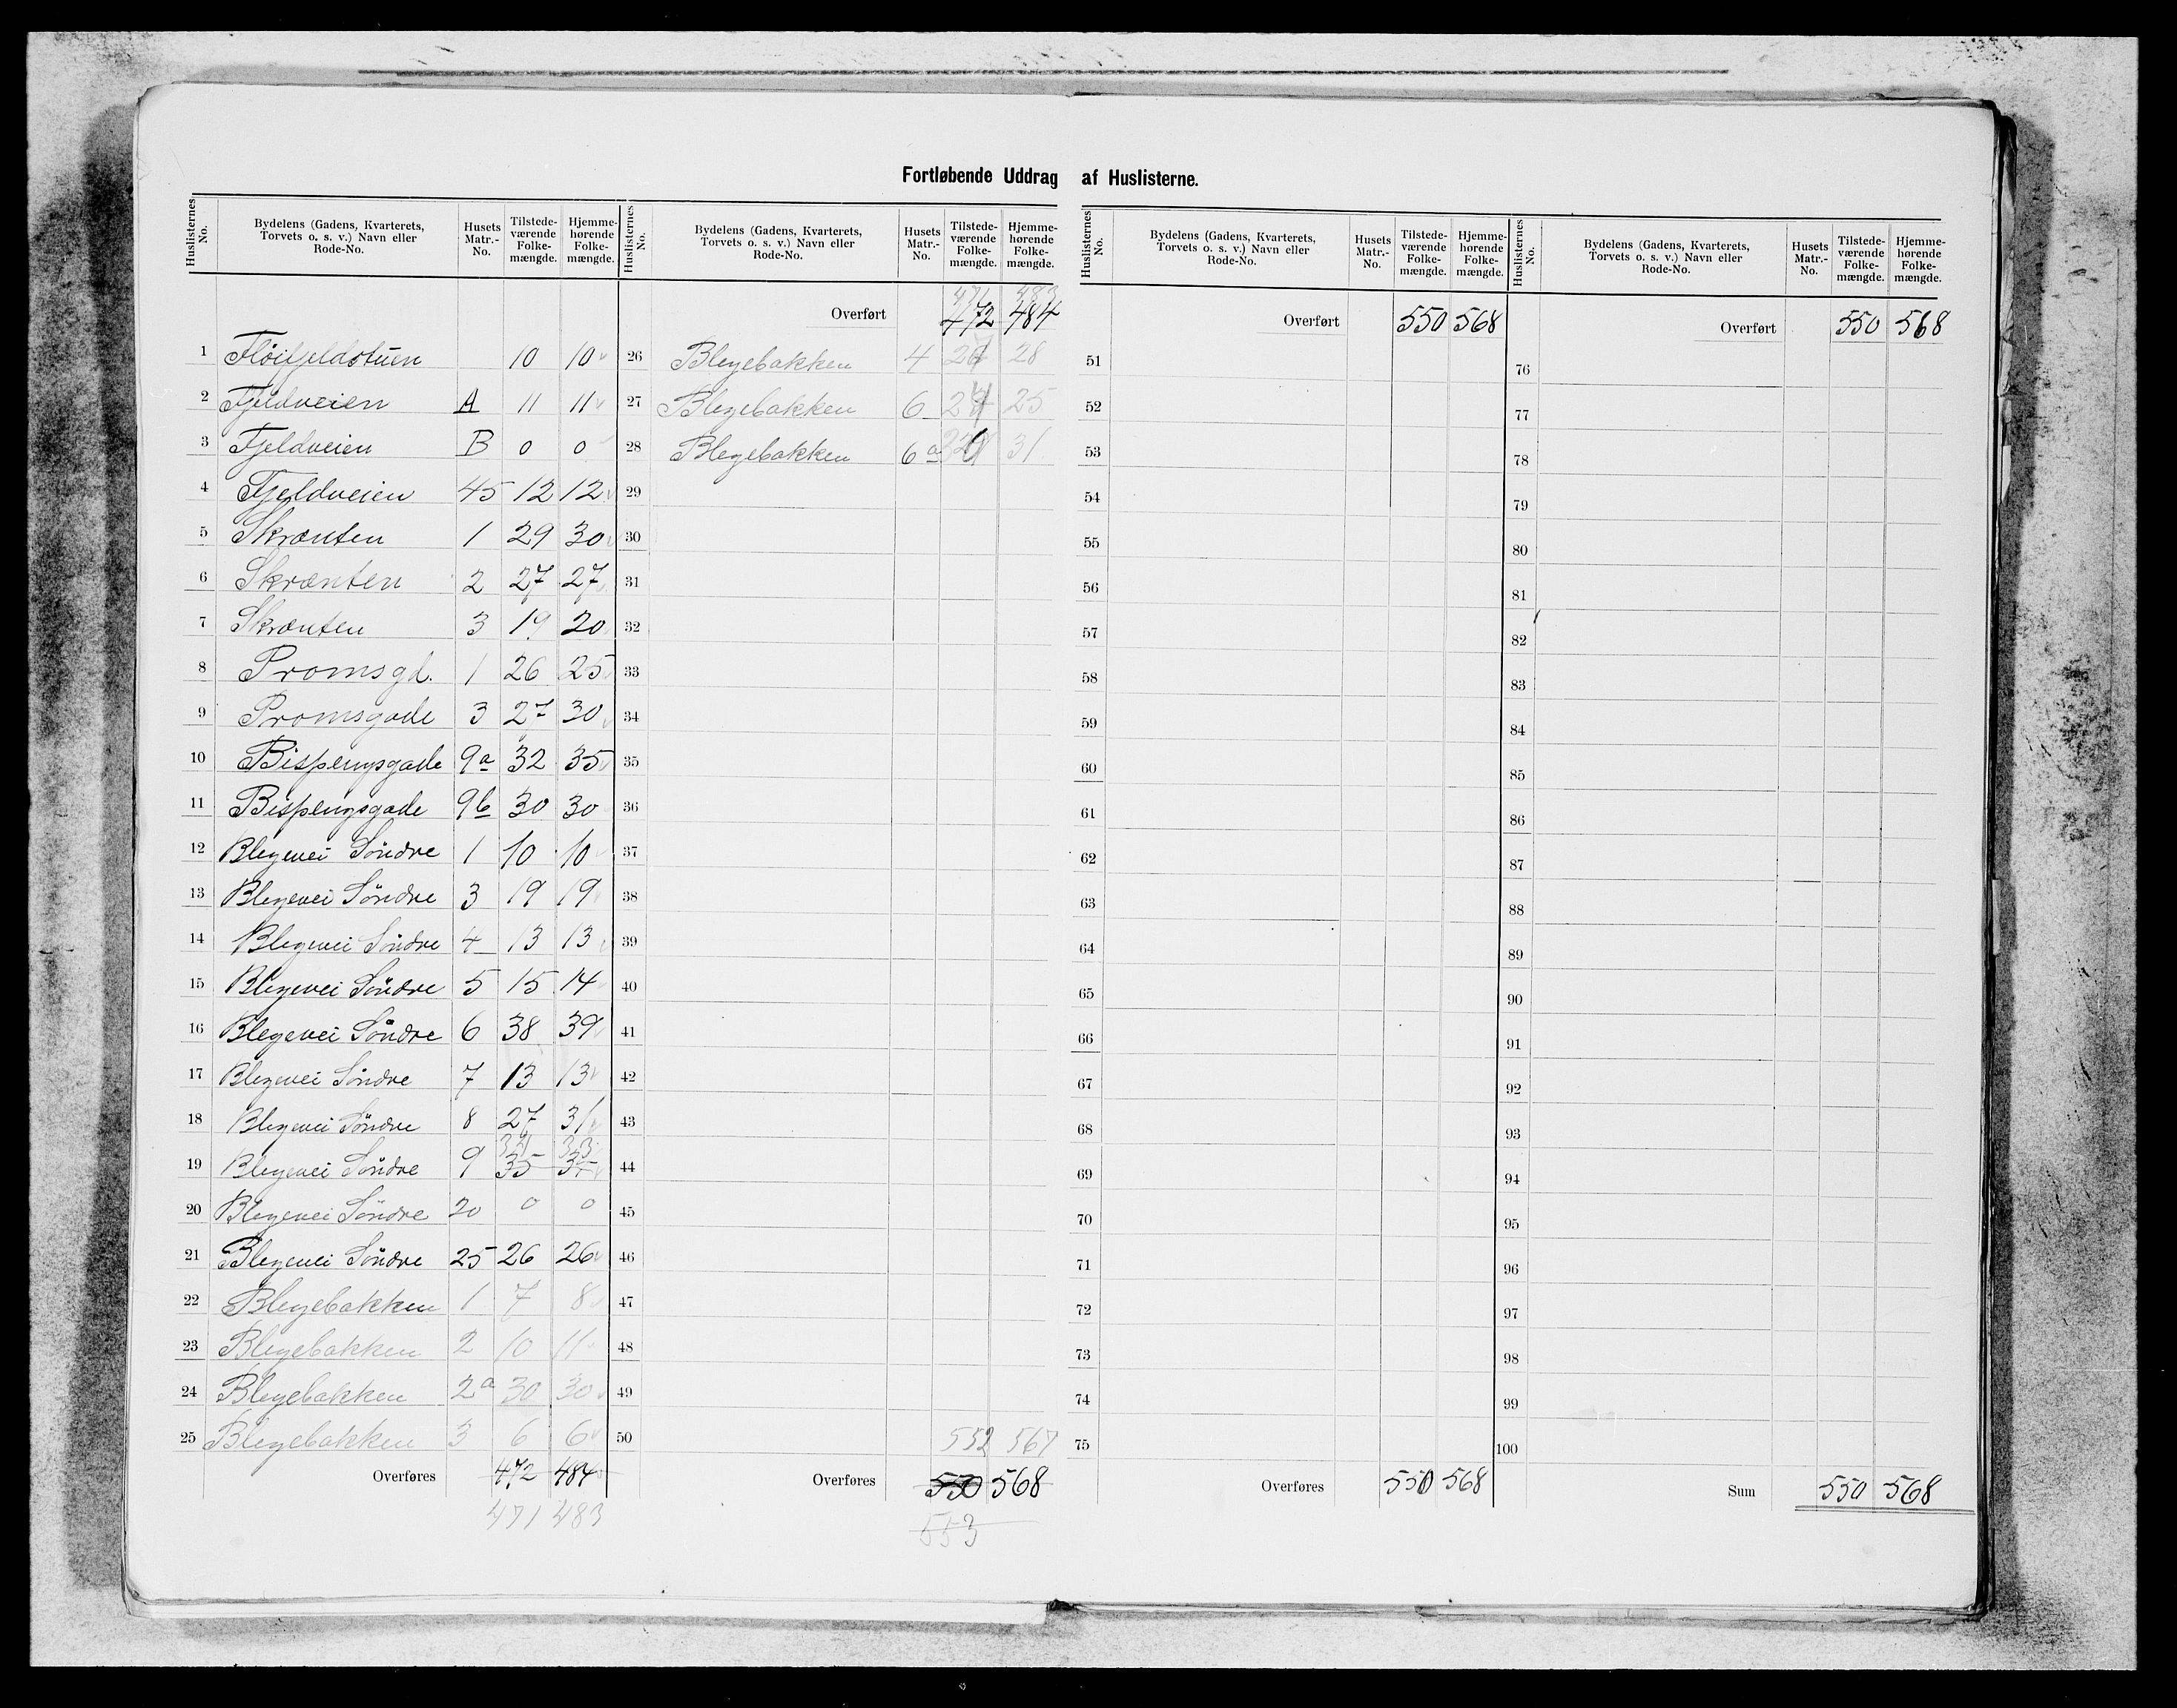 Fortløbende Uddrag af Huslisterne.
Huslisternes No. Bydelens (Gadens, Kvarterets, Torvets o. s. v.) Navn eller Rode-No. Husets Matr.-No. Tilstedeværende Folkemængde. Hjemmehørende Folkemængde.
1 Fløifjeldstuen 10 10
2 Fjeldveien A 11 11
3 Fjeldveien B 0 0
4 Fjeldveien 45 12 12
5 Skrænten 1 29 30
6 Skrænten 2 27 27
7 Skrænten 3 19 20
8 Promsgd. 1 26 25
9 Promsgade 3 27 30
10 Bispengsgade 9a 32 35
11 Bispengsgade 9b 30 30
12 Blegevei Söndre 1 10 10
13 Blegevei Söndre 3 19 19
14 Blegevei Söndre 4 13 13
15 Blegevei Söndre 5 15 14
16 Blegevei Söndre 6 38 39
17 Blegevei Söndre 7 13 13
18 Blegevei Söndre 8 27 31
33
19 Blegevei Söndre 9 35
20 Blegevei Söndre 20 0 0
21 Blegevei Söndre 25 26 26
22 Blegebakken 1 7 8
23 Blegebakken 2 10 11
24 Blegebakken 2a 30 30
25 Blegebakken 3 6 6
Overføres 472 484
471 483
Huslisternes No. Bydelens (Gadens, Kvarterets, Torvets o. s. v.) Navn eller Rode-No. Husets Matr.-No. Tilstedeværende Folkemængde. Hjemmehørende Folkemængde.
471 483
Overført 472 484
26 Blegebakken 4 28
27 Blegebakken 6 25
28 Blegebakken 6a 31
29
30
31
32
33
34
35
36
37
38
39
40
41
42
43
44
45
46
47
48
49
50
552 567
Overføres 550 568
553
Huslisternes No. Bydelens (Gadens, Kvarterets, Torvets o. s. v.) Navn eller Rode-No. Husets Matr.-No. Tilstedeværende Folkemængde. Hjemmehørende Folkemængde.
Overført 550 568
51
52
53
54
55
56
57
58
59
60
61
62
63
64
65
66
67
68
69
70
71
72
73
74
75
Overføres 550 568
Huslisternes No. Bydelens (Gadens, Kvarterets, Torvets o. s. v.) Navn eller Rode-No. Husets Matr.-No. Tilstedeværende Folkemængde. Hjemmehørende Folkemængde.
Overført 550 568
76
77
78
79
80
81
82
83
84
85
86
87
88
89
90
91
92
93
94
95
96
97
98
99
100
Sum 550 568